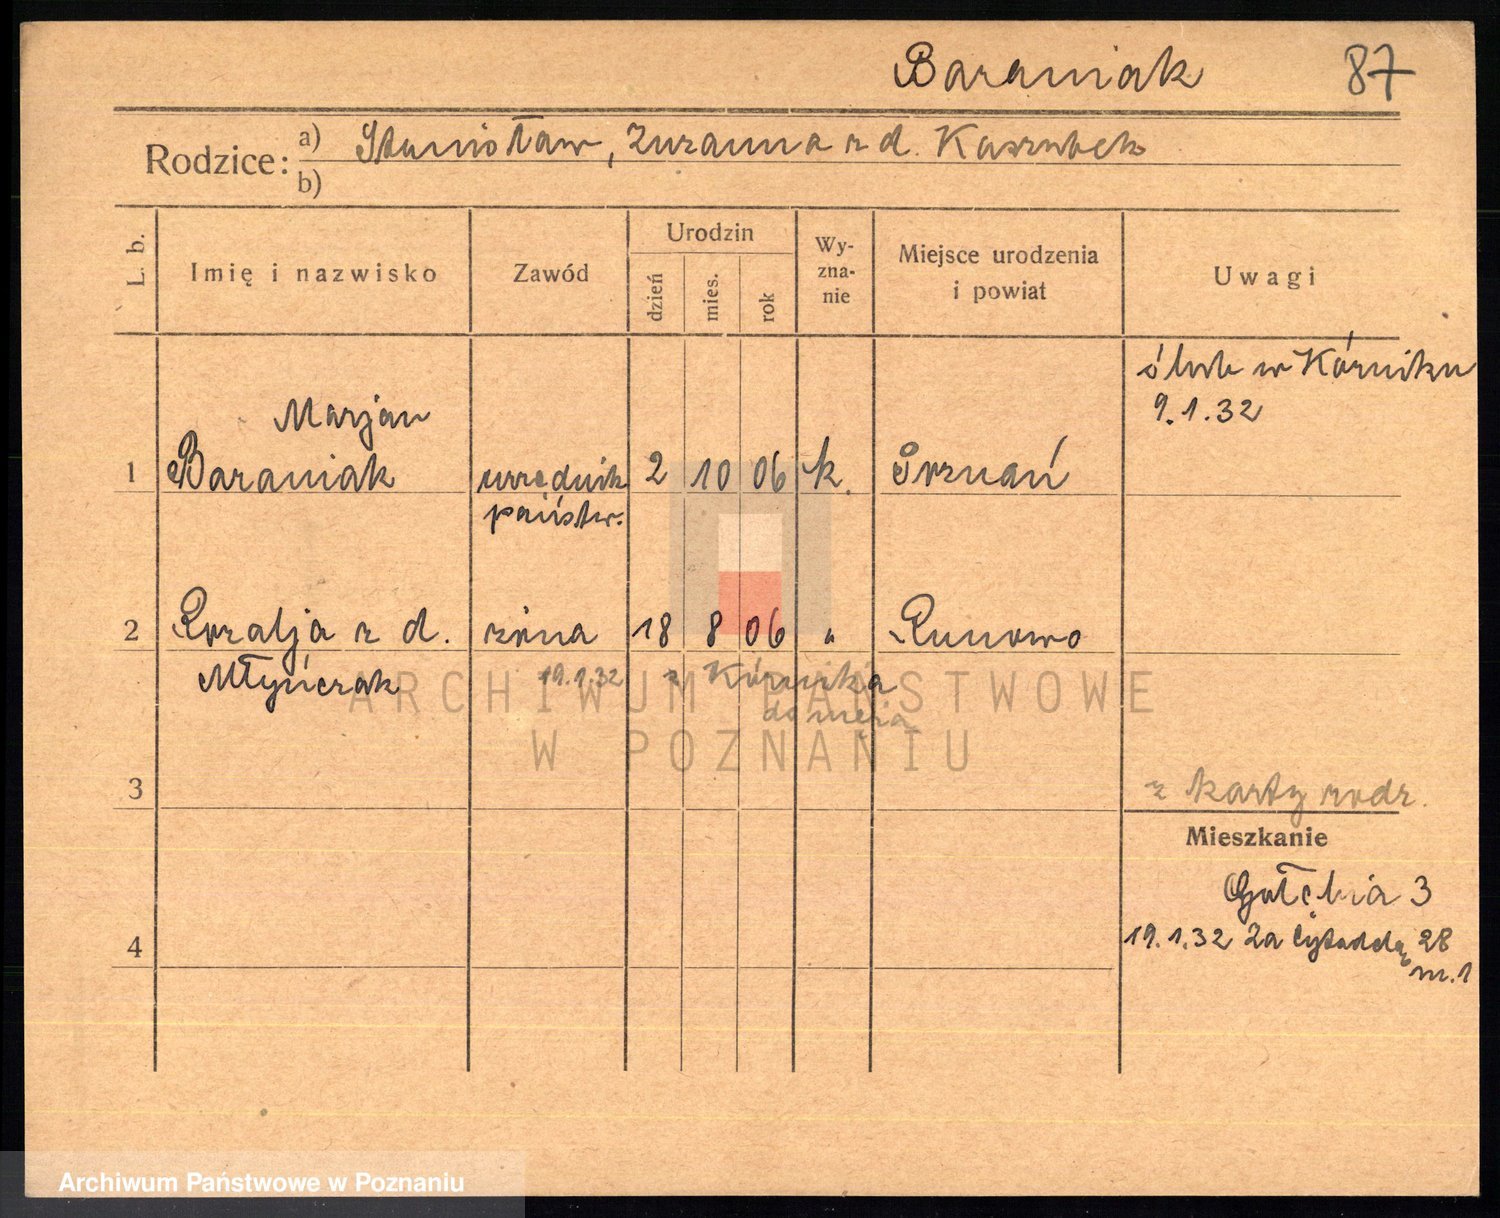 Baraniak 87
Rodzice: a) Stanisław, Zuzanna z d. Kaszubek
b)
L. b. Imię i nazwisko Zawód Urodzin dzień mies. rok Wy-zna-nie Miejsce urodzenia i powiat Uwagi
ślub w Kórniku
9.1.32
Marjan
1 Baraniak urzędnik 2 10 06 k. Poznań
państw.
2 Rozalja z d. żona 18 8 06 " Runowo
Młyńczak 19.1.32 z Kórnika
do męża
ARCHIWUM PAŃSTWOWE
W POZNANIU
3 z karty rodz.
Mieszkanie
Gołębia 3
4 19.1.32 Za Cytadelą 28
m.1
Archiwum Państwowe w Poznaniu